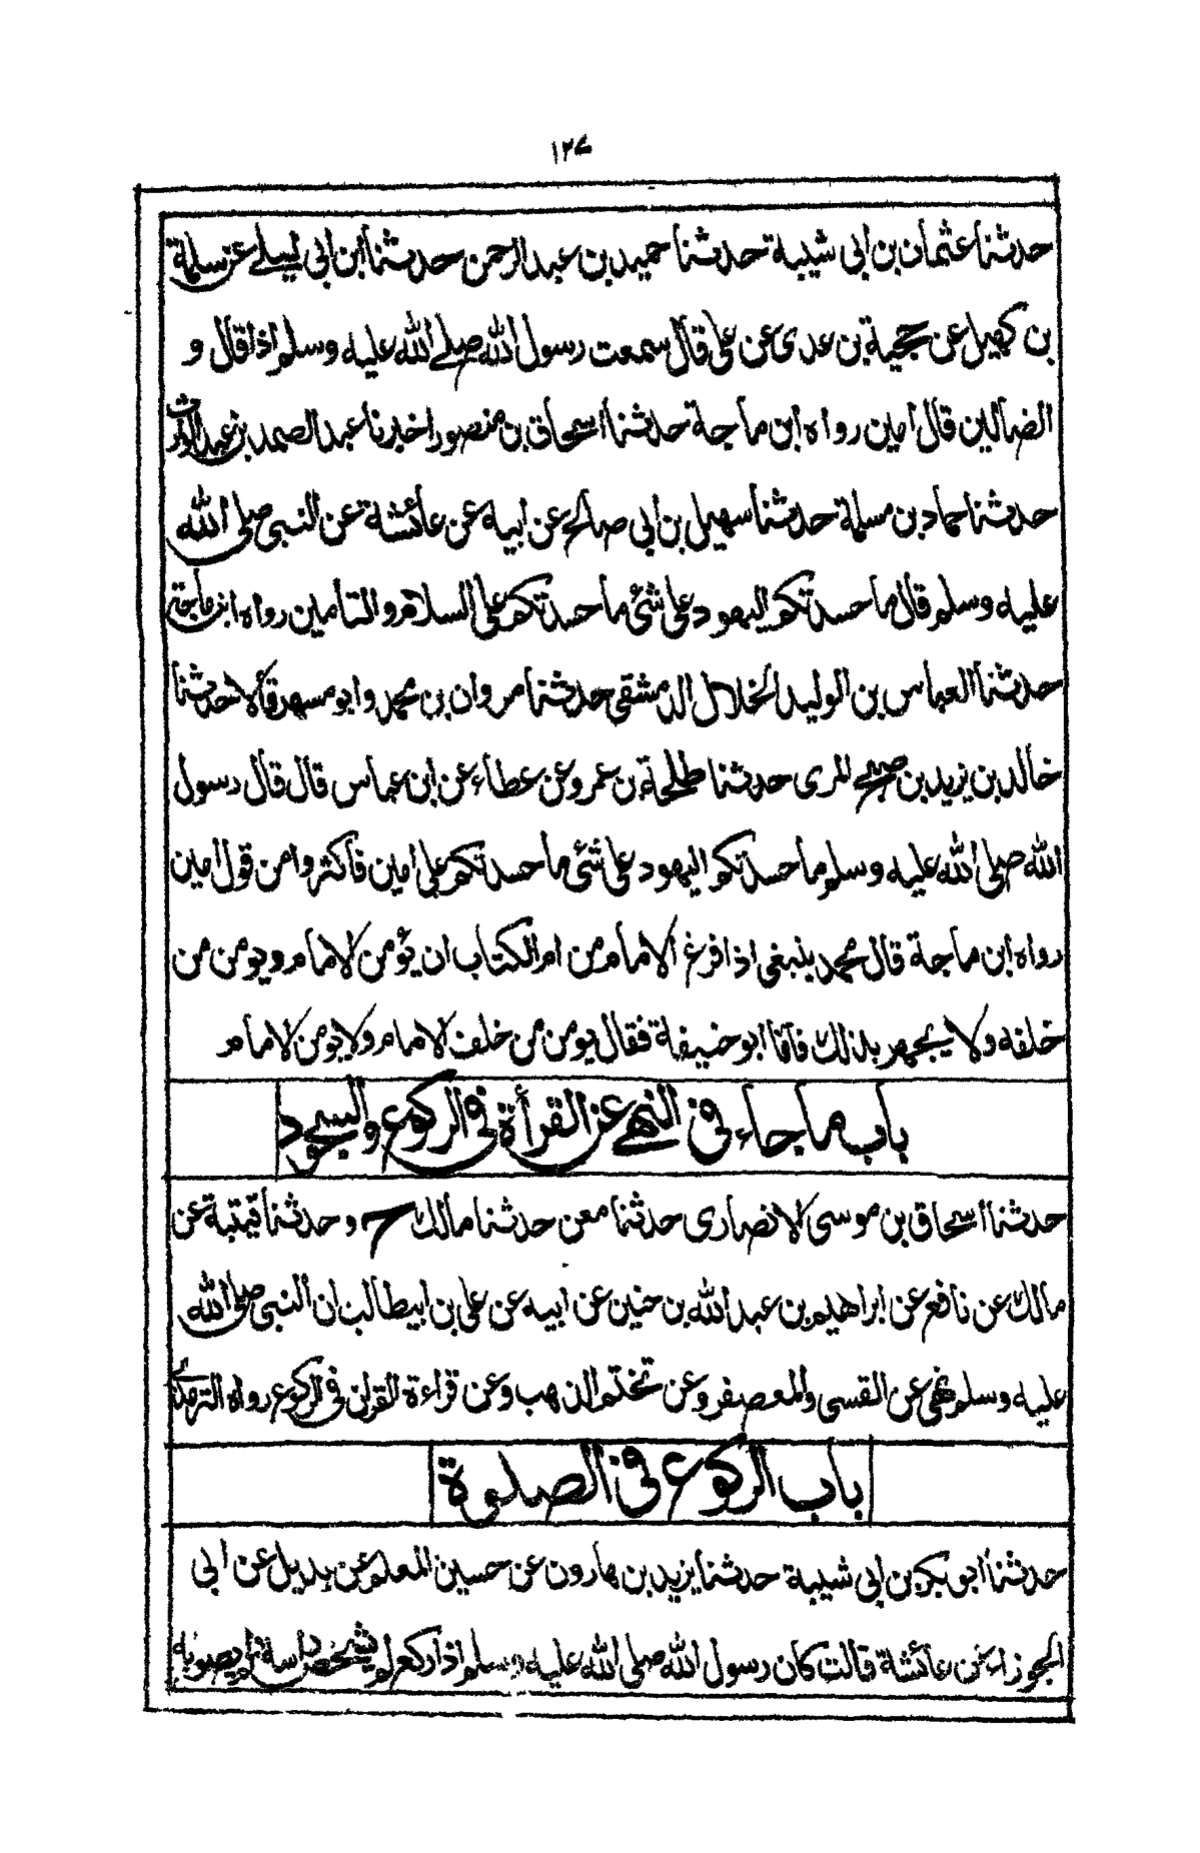 ١٢٧
حدثنا عثمان بن ابى شيبة حدثنا حميد بن عبد الرحمن حدثنا ابن ابى ليلے عن سلمة
بن كهيل عن حجية بن عدى عن على قال سمعت رسول الله صلے الله عليه وسلم اذا قال و
الضالين قال امين رواه ابن ماجة حدثنا اسحاق بن منصور اخبرنا عبد الصمد بن عبد الوارث
حدثنا حماد بن مسلمة حدثنا سهيل بن ابى صالح عن ابيه عن عائشة عن النبى صلى الله
عليه وسلم قال ما حسدتكم اليهود على شئ ما حسدتكم على السلام والتامين رواه ابن ماجة
حدثنا العباس بن الوليد الخلال الدمشقى حدثنا مروان بن محمد وابو مسهر قالا حدثنا
خالد بن يزيد بن صبيح المرى حدثنا طلحة بن عمرو عن عطاء عن ابن عباس قال قال رسول
الله صلى الله عليه وسلم ما حسدتكم اليهود على شئ ما حسدتكم على امين فاكثروا من قول امين
رواه ابن ماجة قال محمد ينبغى اذا فرغ الامام من ام الكتاب ان يؤمن الامام ويومن من
خلفه ولا يجهر بذلك فاما ابو حنيفة فقال يومن من خلف الامام ولا يومن الامام
باب ما جاء فى النهے عن القرأة فى الركوع والسجود
حدثنا اسحاق بن موسى الانصارى حدثنا معن حدثنا مالك ح وحدثنا قيتبة عن
مالك عن نافع عن ابراهيم بن عبد الله بن حنين عن ابيه عن على بن ابيطالب ان النبى صلى الله
عليه وسلم نهى عن القسى والمعصفر وعن تختم الذهب وعن قراءة القران فى الركوع رواه الترمذى
باب الركوع فى الصلوة
حدثنا ابو بكر بن ابى شيبة حدثنا يزيد بن هارون عن حسين المعلم عن بديل عن ابى
الجوزاء عن عائشة قالت كان رسول الله صلى الله عليه وسلم اذا ركع لم يشخص راسه ولم يصوبه